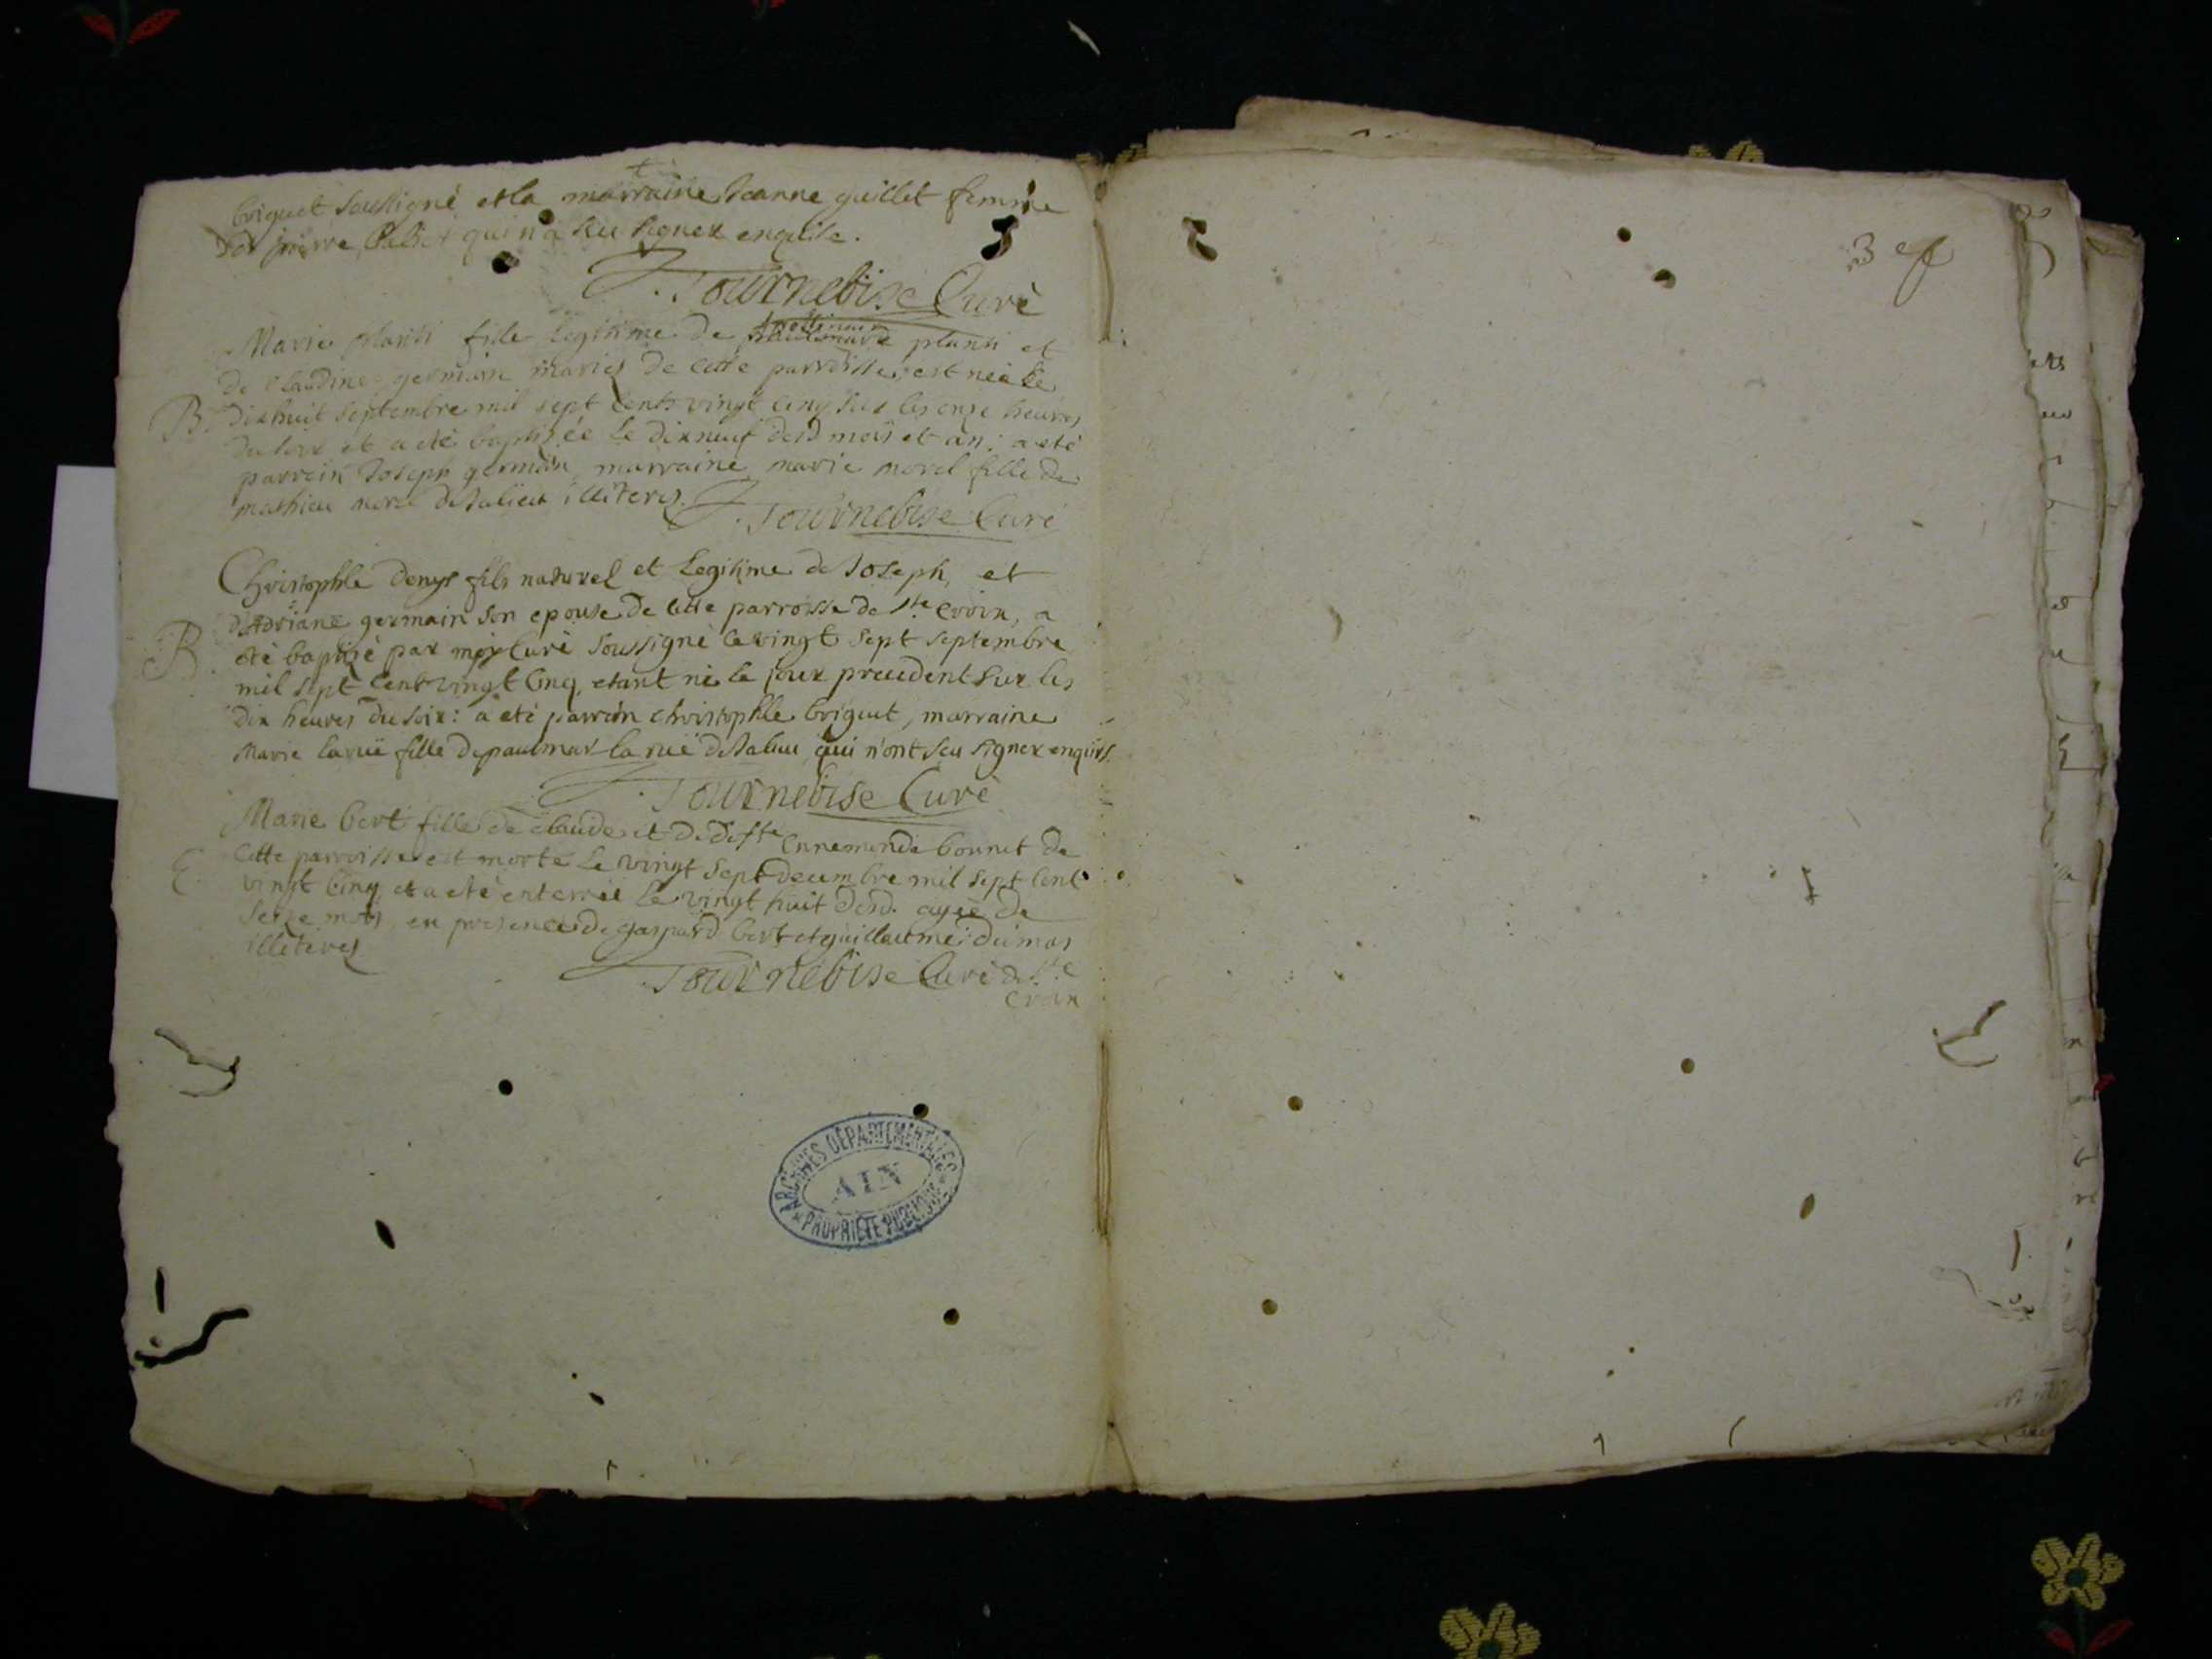 briguet soussigné et la marraine Jeanne guillet femme
pierre qui n'a sceu signer enquise.
J. Tournebise Curé
Marie planti fille legitime de planti et
de Claudine germain mariés de cette parroisse, est née le
B. dixhuit septembre mil sept cents vingt cinq sur les onze heures
du soir et a eté baptisée le dixneuf desd mois et an: a eté
parrein Joseph germain marraine marie morel fille de
mathieu morel illiterés.
J. Tournebise Curé
Christophle Denys fils naturel et legitime de Joseph, et
d'Adriane germain son epouse de cette parroisse de ste Croix, a
B eté baptisé par moy Curé soussigné le vingt sept septembre
mil sept cent vingt cinq, etant né le jour precedent sur les
dix heures du soir: a eté parrein christophle briguet, marraine
Marie laruë fille de paulmar la ruë qui n'ont sceu signer enquis.
J. Tournebise Curé
Marie bert fille de claude et de deffte Ennemonde bonnet de
E cette parroisse est morte le vingt sept decembre mil sept cent
vingt cinq, et a eté enterrée le vingt huit desd. agée de
seize mois en presence de gaspard bert et guillaume dumas
illiterés
J. Tournebise Curé de Ste
Croix
ARCHIVES DÉPARTEMENTALES
AIN
PROPRIÉTÉ PUBLIQUE
3 ef